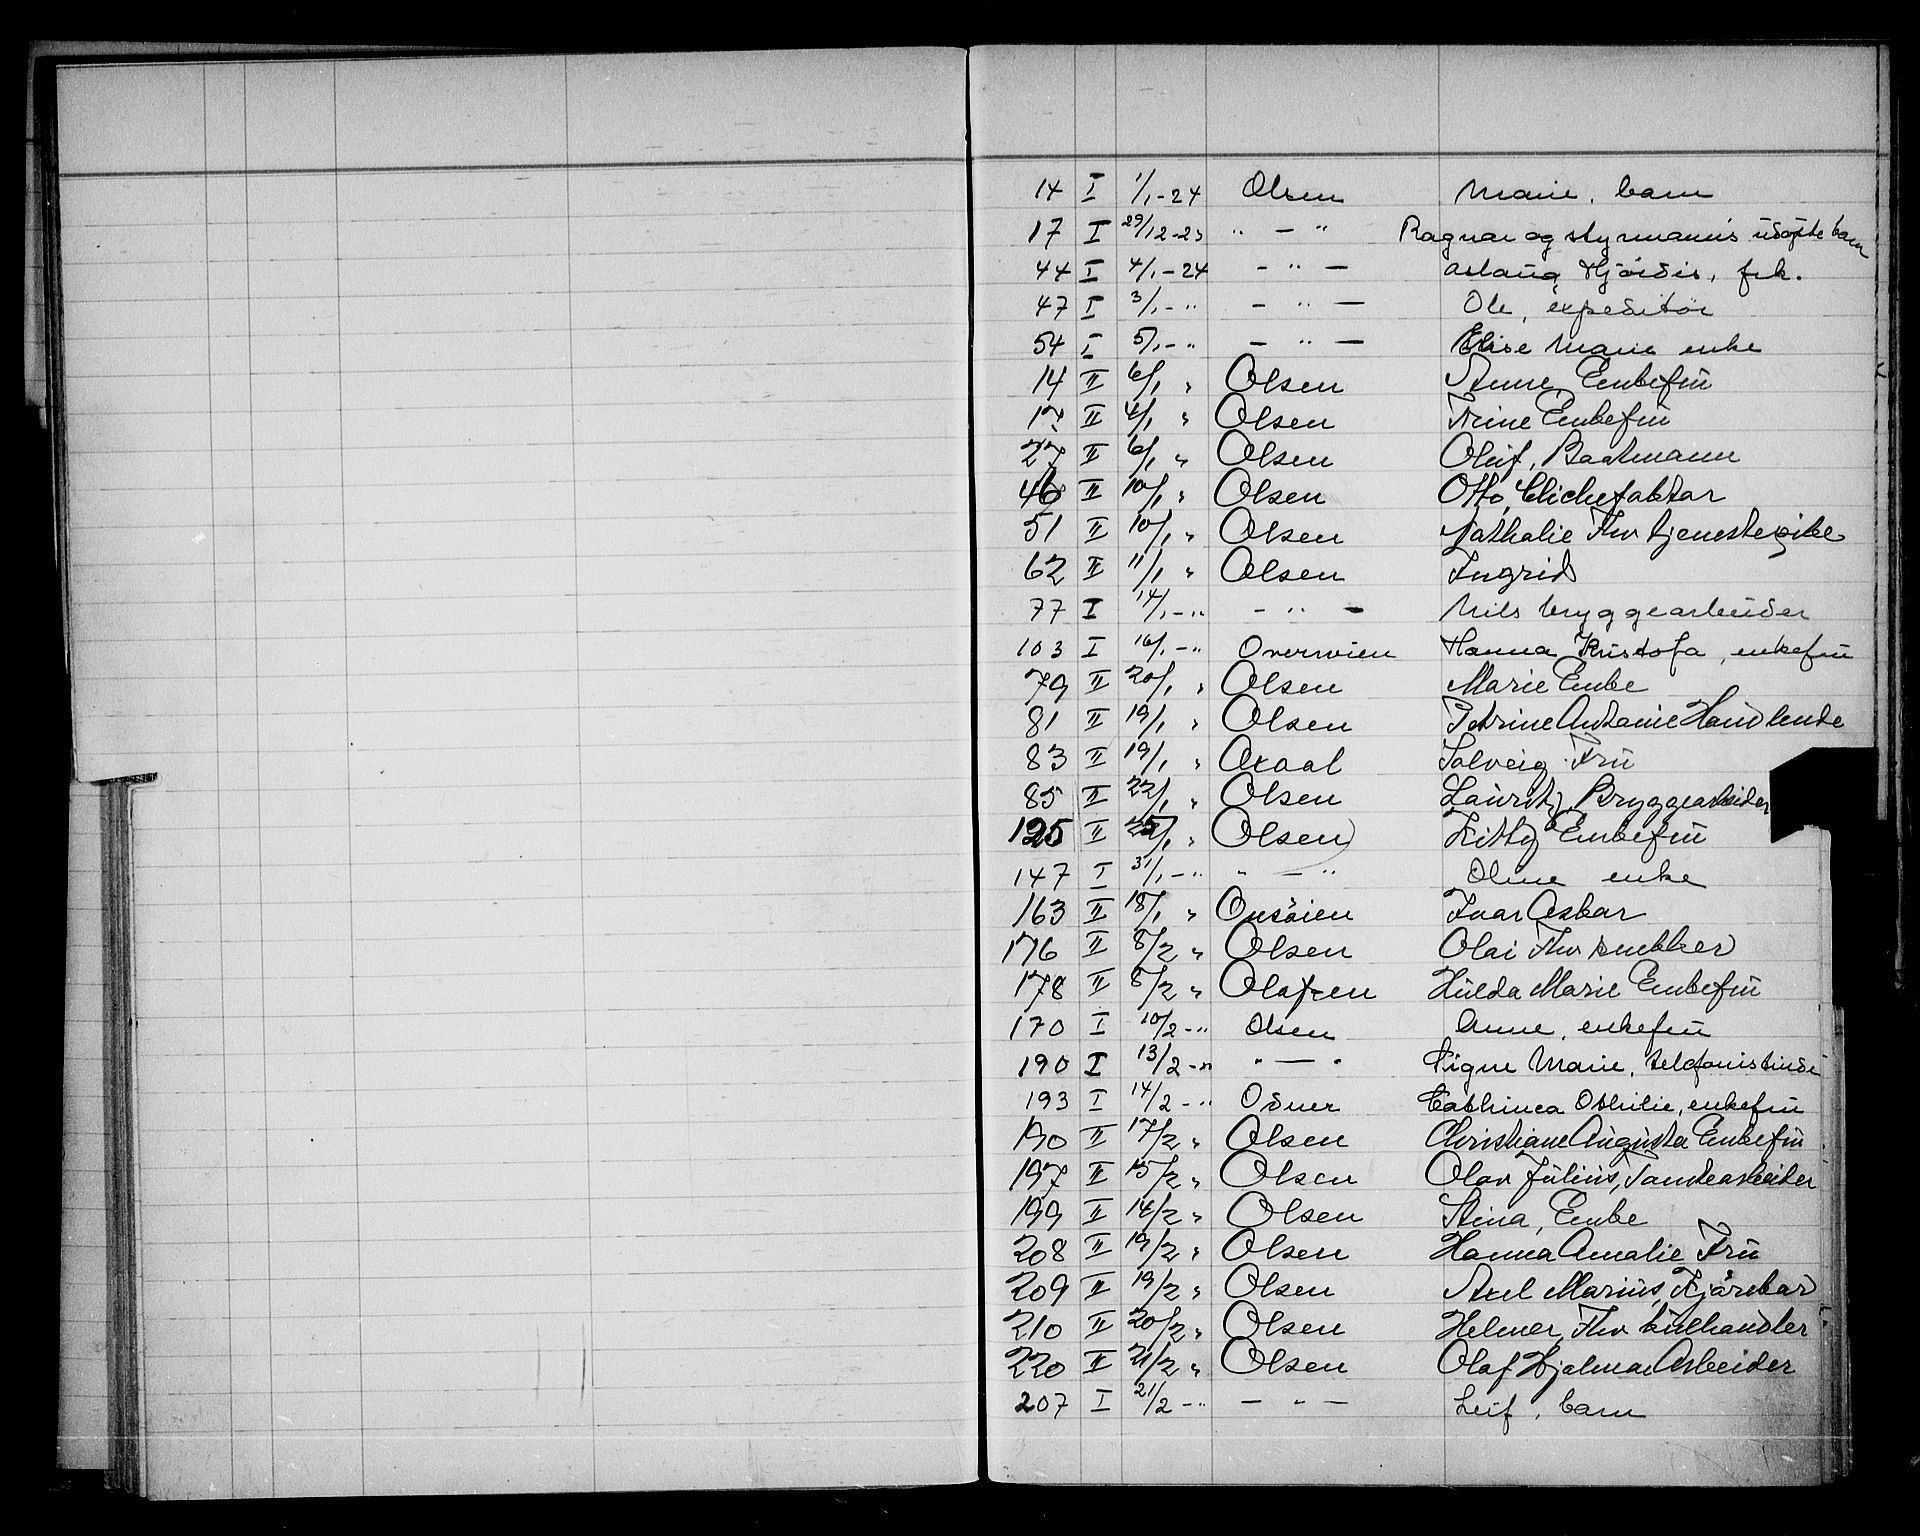 14 I 1/1-24 Olsen Marie, barn
17 I 29/12-23 " — " Ragnar og styrmanns udøpte barn
44 I 4/1-24 — " — Aslaug Hjördis, frk.
47 I 3/1-" — " — Ole, expeditör
54 I 5/1-" — " — Elise Marie enke
14 II 6/1 " Olsen Anne, Enkefru
17 II 4/1 " Olsen Trine Enkefru
27 II 6/1 " Olsen Oluf, Baatmann
46 II 10/1 " Olsen Otto, Clichefaktor
51 II 10/1 " Olsen Nathalie Fhv tjenestepike
62 II 11/1 " Olsen Ingrid
77 I 14/1-" — " — Nils bryggearbeider
103 I 16/1-" Overvien Hanna Kristofa, enkefru
79 II 20/1 " Olsen Marie Enke
81 II 19/1 " Olsen Petrine Antonie Handlende
83 II 19/1 " Oxaal Solveig Fru
85 II 22/1 " Olsen Lauritz, Bryggearbeider
125 II 25/1 " Olsen Kitty Enkefru
147 I 31/1-" " — " Oline enke
163 II 18/1 " Onsöien Ivar Oskar
176 II 8/2 " Olsen Olai Fhv snekker
178 II 8/2 " Olafsen Hulda Marie Enkefru
170 I 10/2-" Olsen Anne, enkefru
190 I 13/2-" " — " Signe Marie, telefonistinde
193 I 14/2-" Odner Cathinca Othilie, enkefru
190 II 17/2 " Olsen Christiane Augusta Enkefru
197 II 15/2 " Olsen Olav Julius, Tomtearbeider
199 II 14/2 " Olsen Stina, Enke
208 II 19/2 " Olsen Hanna Amalie Fru
209 II 19/2 " Olsen Axel Marius, Kjørekar
210 II 20/2 " Olsen Helmer, Fhv kulhandler
220 II 21/2 " Olsen Olaf Hjalmar Arbeider
207 I 21/2-" — " — Leif, barn